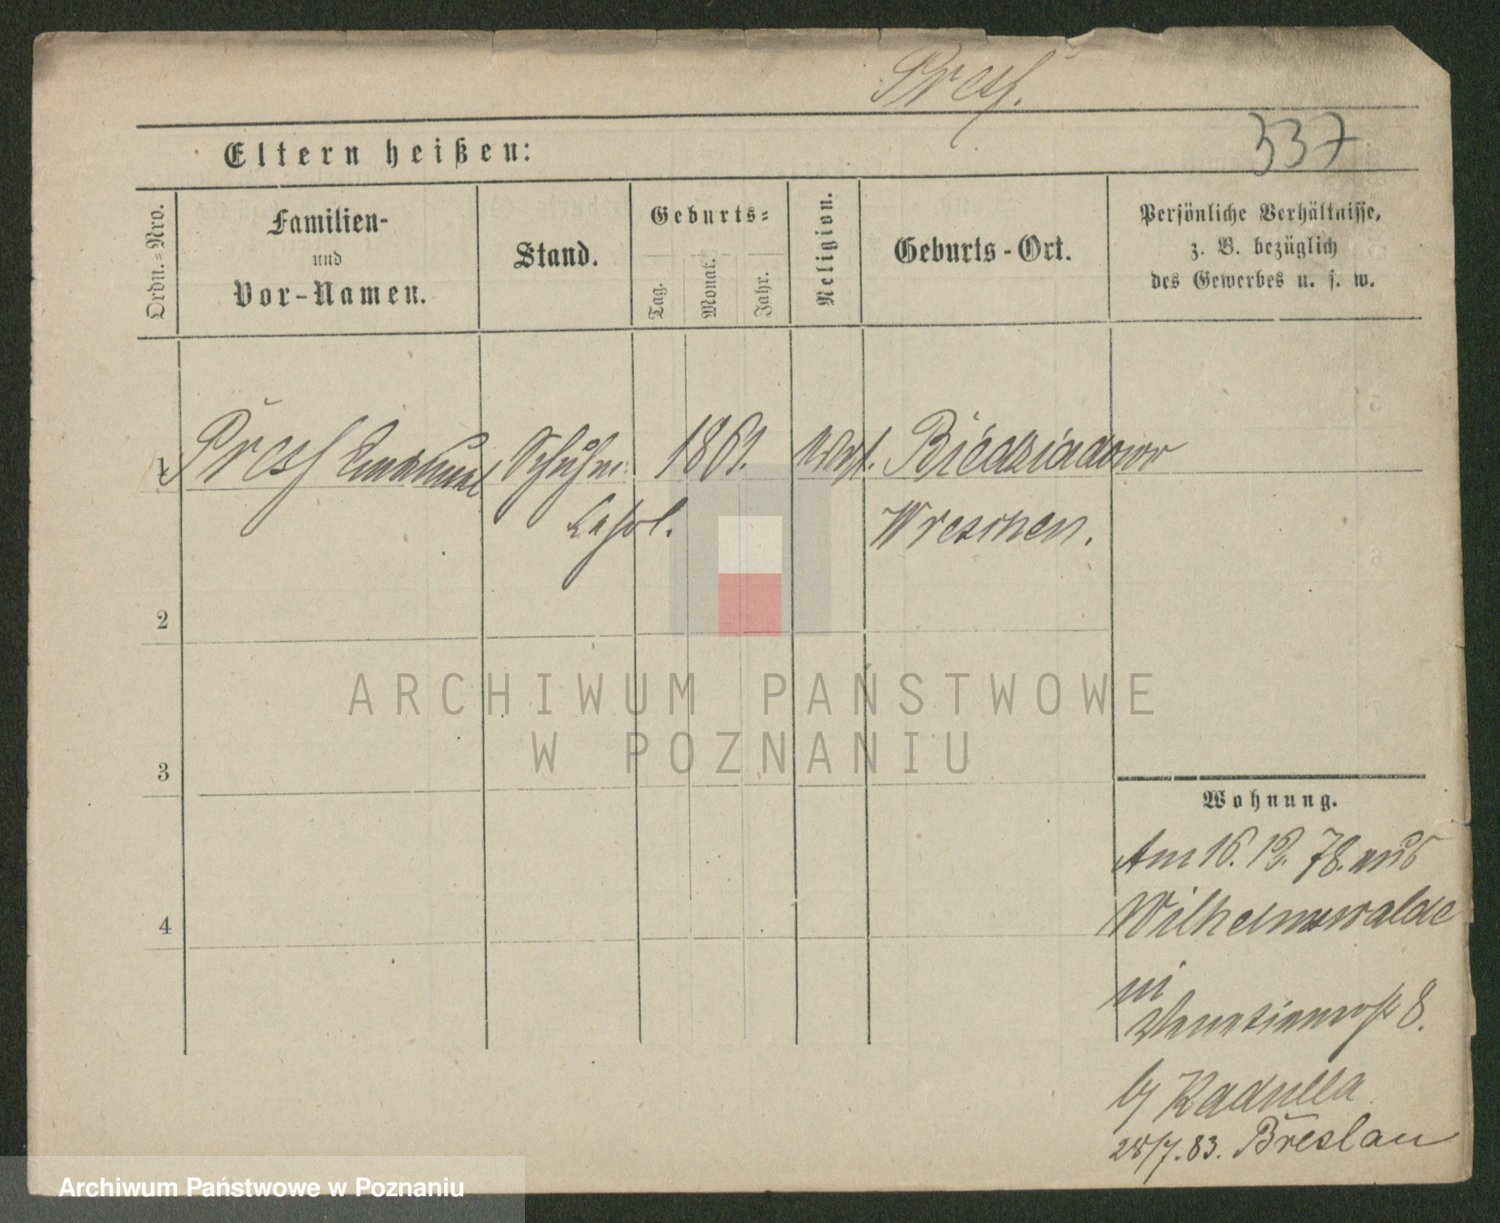 Presf.
337
Eltern heißen:
Ordn.-Nro.
Familien-
und
Vor-Namen.
Stand.
Geburts-
Tag.
Monat.
Jahr.
Religion.
Geburts-Ort.
Persönliche Verhältnisse,
z. B. bezüglich
des Gewerbes u. s. w.
1 Presf 1861. Biedziadowo
Wreschen.
2
3
4
Wohnung.
Am 16. 12. 78. aus
Wilhelmswalde
in
8.
by Kadulla
28/7. 83. Breslau
ARCHIWUM PAŃSTWOWE
W POZNANIU
Archiwum Państwowe w Poznaniu